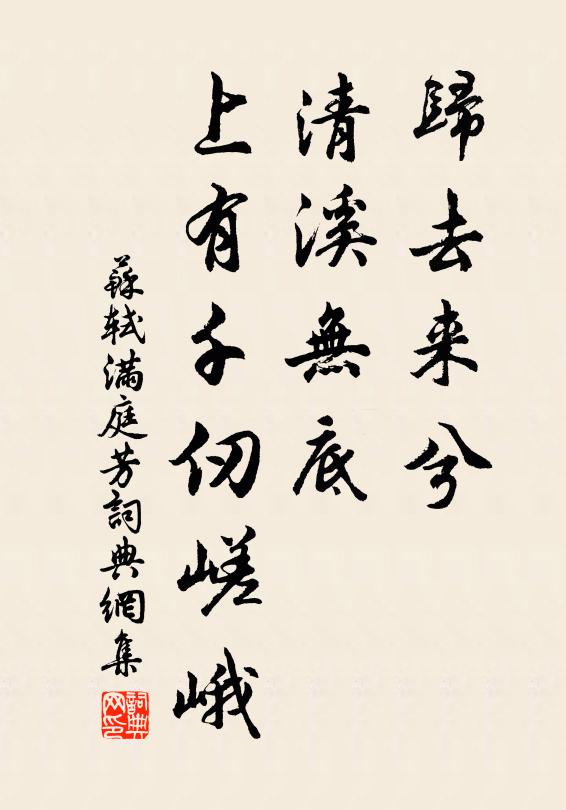 歸去来兮
清溪無底
上有千仞嵯峨
蘇軾滿庭芳詞典網集
詞典
网印